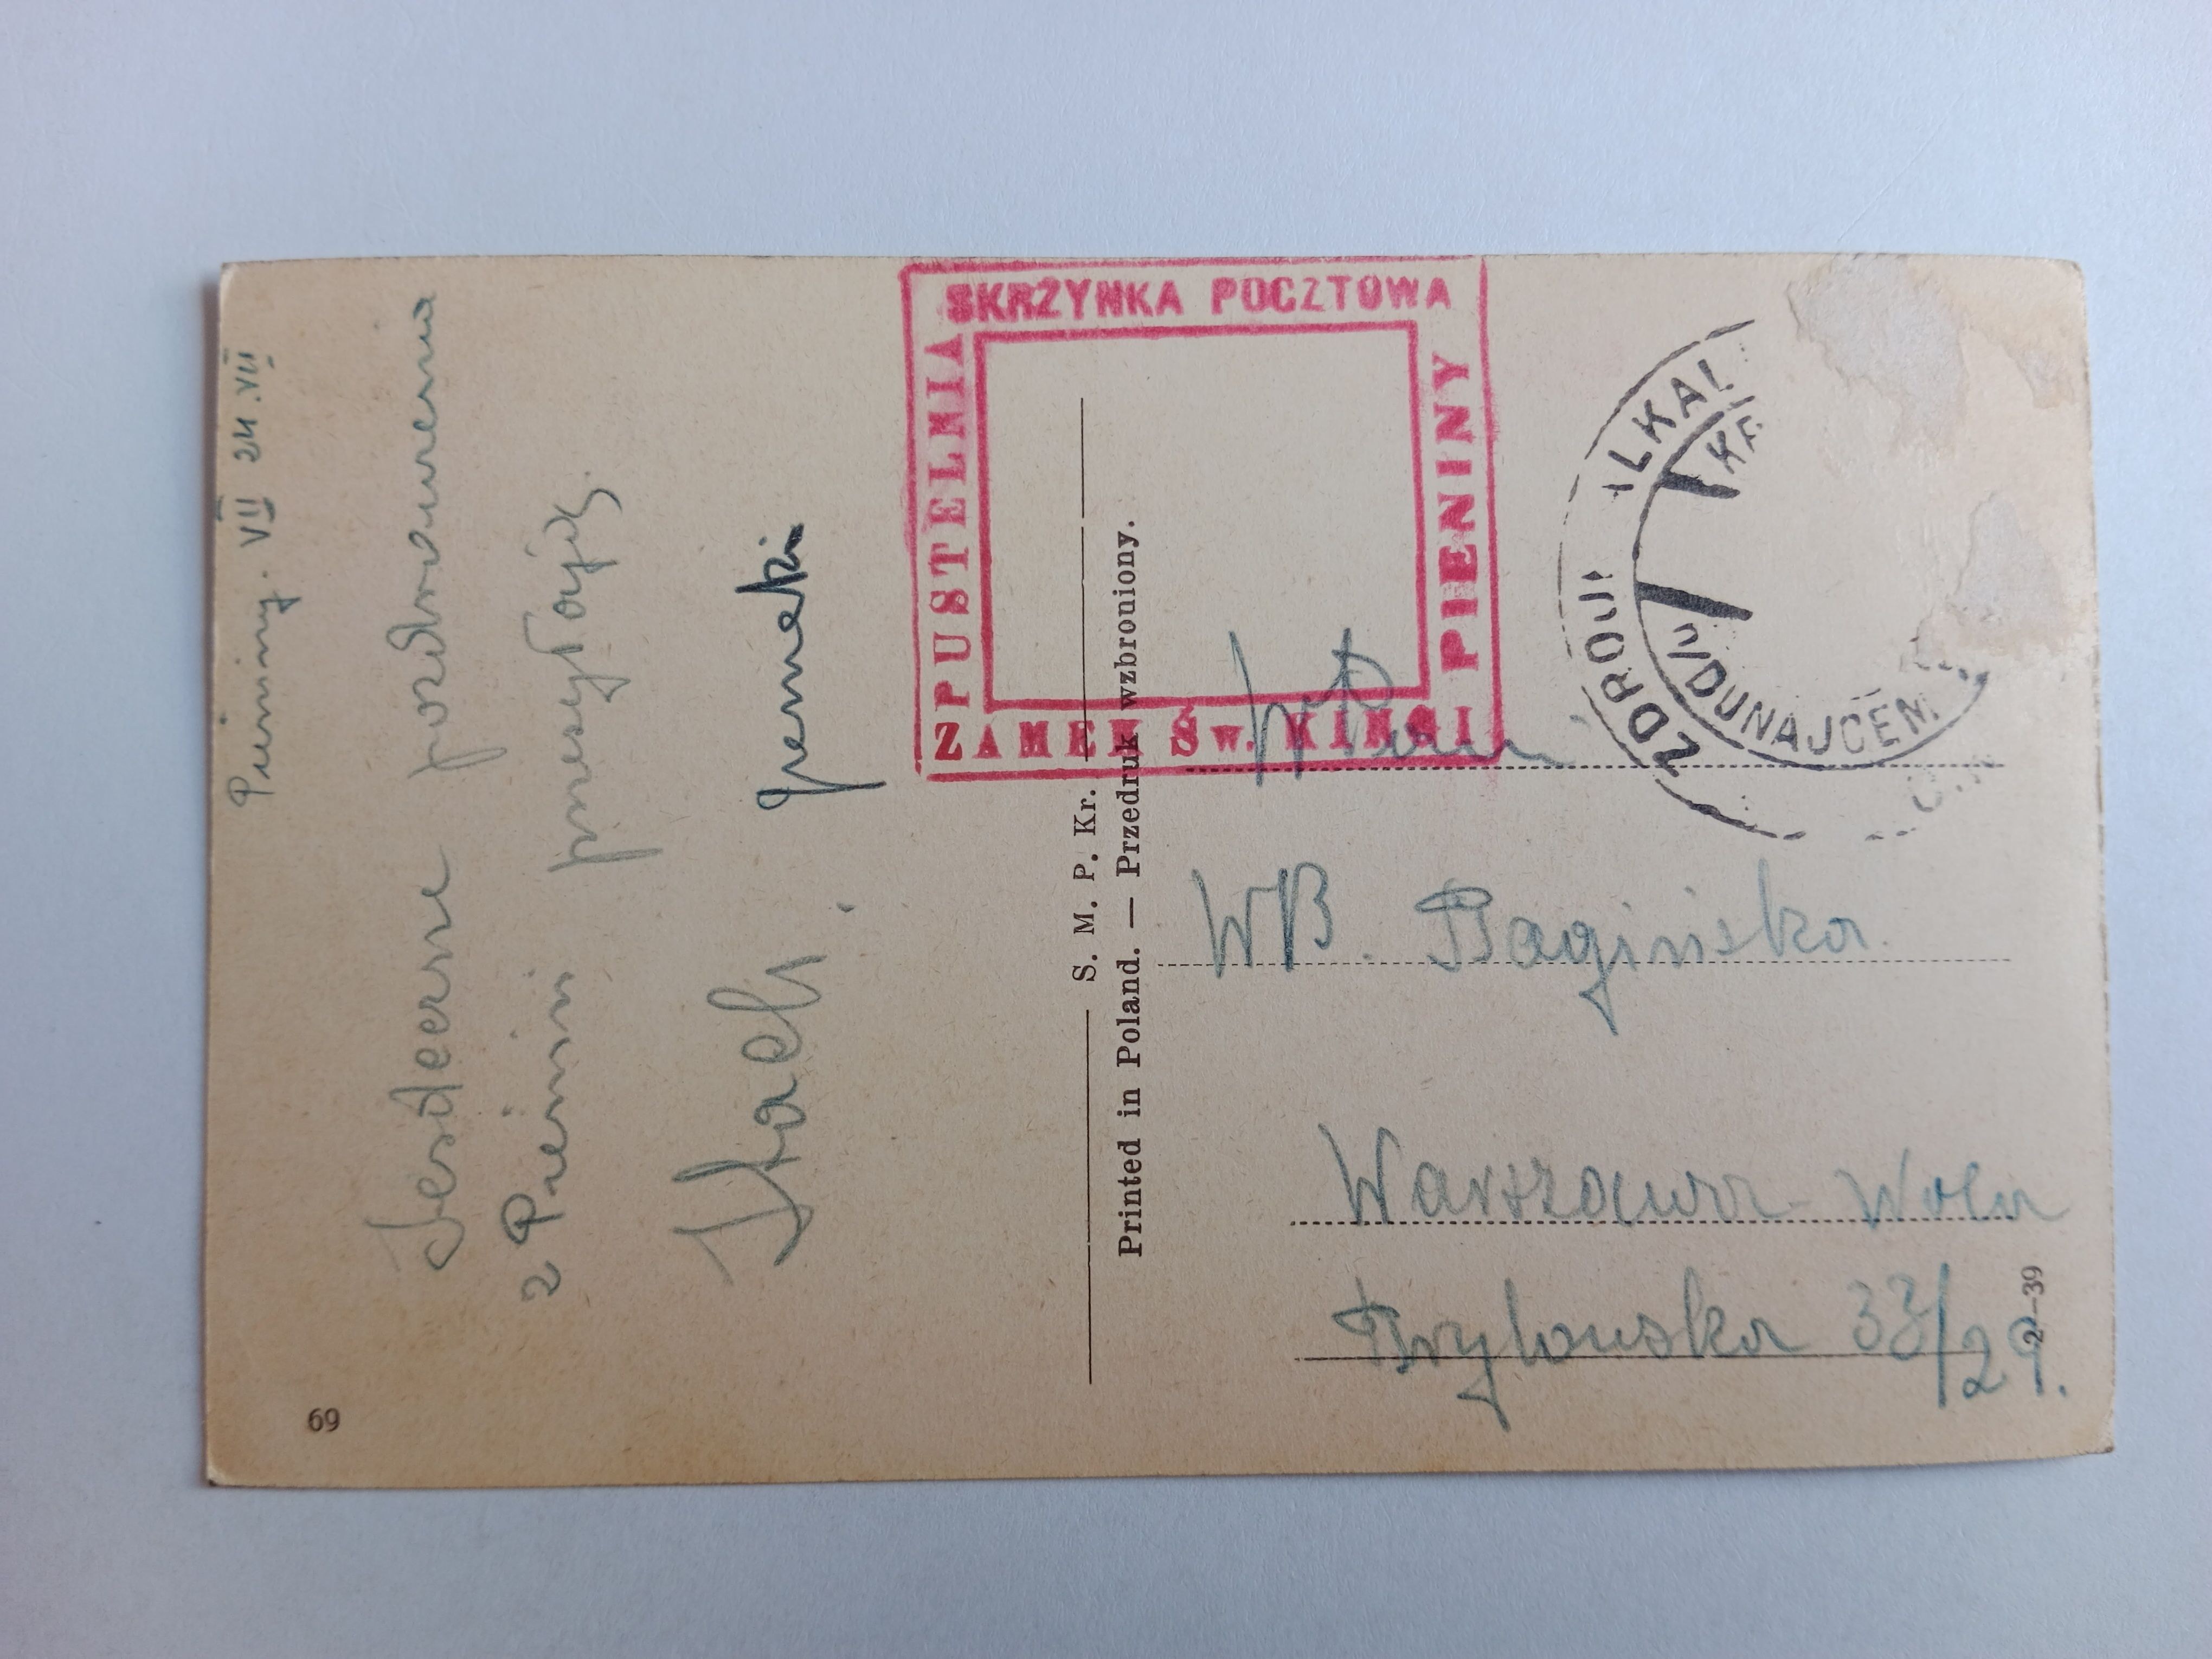 Pieniny. VII 24.VII
Serdeczne pozdrowienia
z Pienin przesyłają
Stach.
69
SKRZYNKA POCZTOWA
PUSTELNIA
PIENINY
ZAMEK Św. KINGI
S. M. P. Kr.
Printed in Poland. — Przedruk wzbroniony.
ZDRÓJ
DUNAJCEM
WPani
WB. Bagińska.
Warszawa-Wola
Brylowska 33/29.
2—39